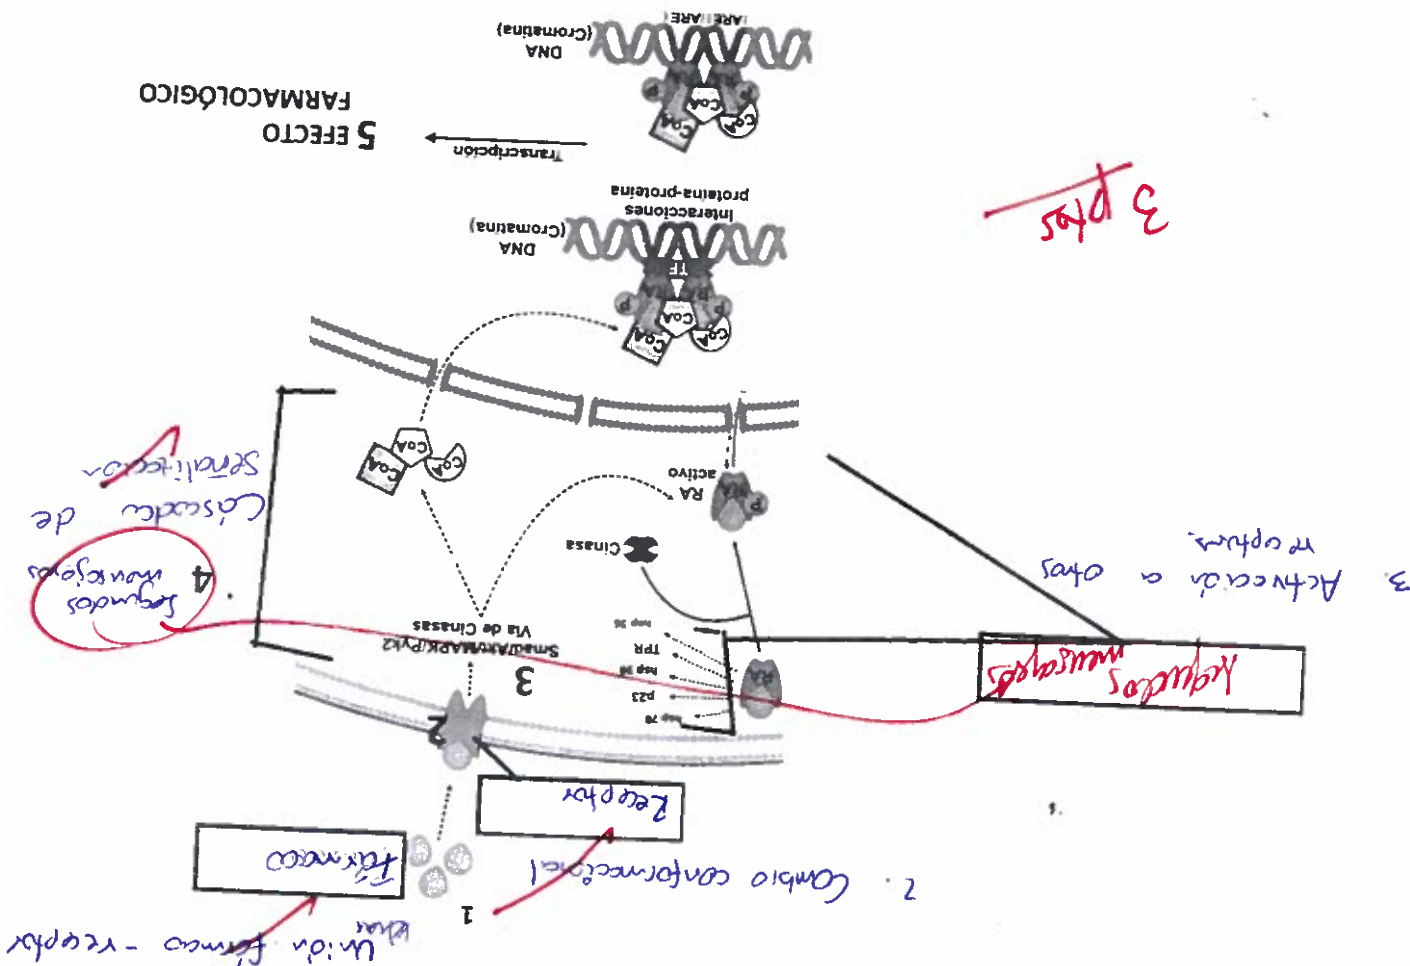 Unión fármaco - receptor
1
Fármaco
2. Cambio conformacional
Receptor
2
3
Smad/Akt/MAPK/Pyk2
Vía de Cinasas
hsp 70
p23
hsp 90
TPR
hsp 56
RA
Segundos
mensajeros
3. Activación a otros
receptores.
4
Segundos
mensajeros
Cascada de
señalización
Cinasa
RA
activo
P
CoA
CoA
CoA
CoA
CoA
CoA
P
P
RA
RA
TF
DNA
(Cromatina)
Interacciones
proteína-proteína
3 ptos
Transcripción
5 EFECTO
FARMACOLÓGICO
CoA
CoA
CoA
P
P
DNA
(Cromatina)
ARE ARE